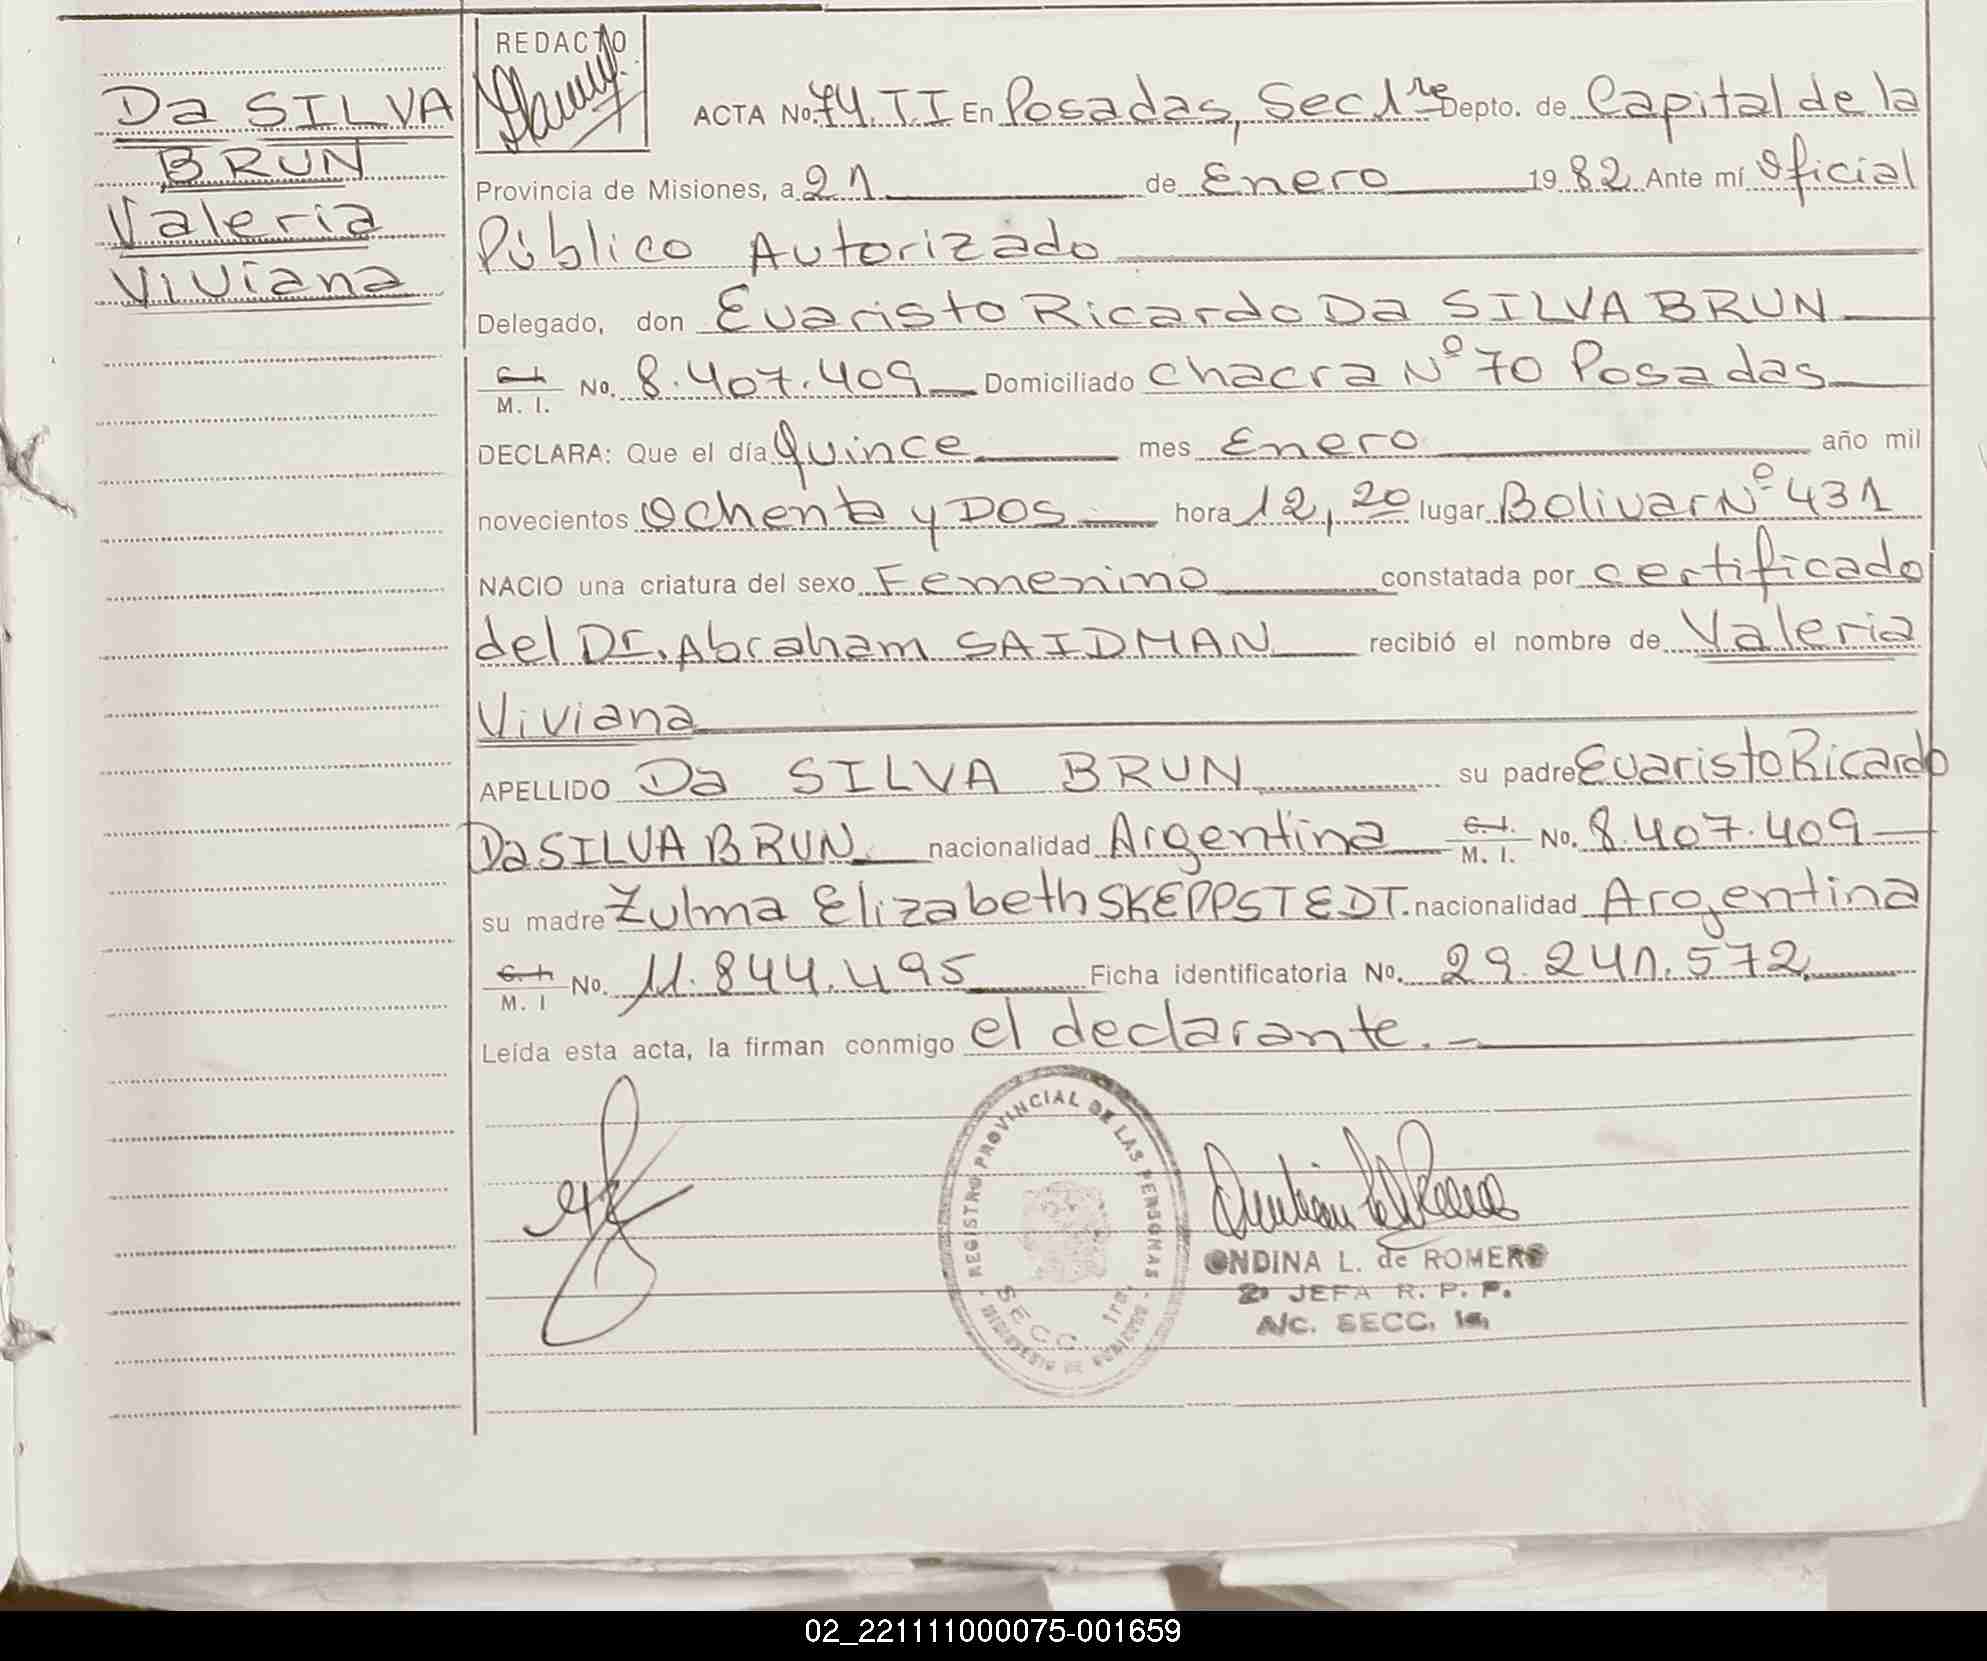 Da SILVA
BRUN
Valeria
Viviana
REDACTO
ACTA No. 74. T. I En Posadas, Sec 1ra Depto. de Capital de la
Provincia de Misiones, a 21 de Enero 1982. Ante mí Oficial
Público Autorizado
Delegado, don Evaristo Ricardo Da SILVA BRUN
C. I.
M. I. No. 8.407.409 Domiciliado Chacra Nº 70 Posadas
DECLARA: Que el día Quince mes Enero año mil
novecientos Ochenta y DOS hora 12,20 lugar Bolivar Nº 431
NACIO una criatura del sexo Femenino constatada por certificado
del Dr. Abraham SAIDMAN recibió el nombre de Valeria
Viviana
APELLIDO Da SILVA BRUN su padre Evaristo Ricardo
Da SILVA BRUN nacionalidad Argentina C. I.
M. I. No. 8.407.409
su madre Zulma Elizabeth SKEPPSTEDT. nacionalidad Argentina
C. I.
M. I No. 11.844.495 Ficha identificatoria No. 29.241.572
Leída esta acta, la firman conmigo el declarante.
REGISTRO PROVINCIAL DE LAS PERSONAS
SECC. 1ra.
MINISTERIO DE GOBIERNO
ONDINA L. de ROMERO
2º JEFA R. P. P.
A/C. SECC. 1a.
02_221111000075-001659